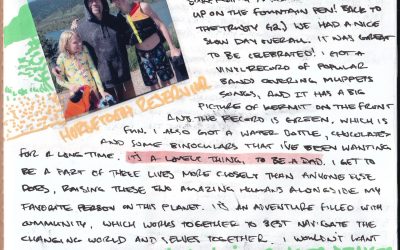 UP ON THE FOUNTAIN PEN! BACK TO
THE TRUSTY G2.) WE HAD A NICE
SLOW DAY OVERALL. IT WAS GREAT
TO BE CELEBRATED! I GOT A
VINYL RECORD OF POPULAR
BANDS COVERING MUPPETS
SONGS, AND IT HAS A BIG
PICTURE OF KERMIT ON THE FRONT
AND THE RECORD IS GREEN, WHICH IS
HORSETOOTH RESERVOIR
FUN. I ALSO GOT A WATER BOTTLE, CHOCOLATES
AND SOME BINOCULARS THAT I'VE BEEN WANTING
FOR A LONG TIME. IT'S A LOVELY THING, TO BE A DAD. I GET TO
BE A PART OF THESE LIVES MORE CLOSELY THAN ANYONE ELSE
DOES, RAISING THESE TWO AMAZING HUMANS ALONGSIDE MY
FAVORITE PERSON ON THIS PLANET. IT'S AN ADVENTURE FILLED WITH
COMMUNITY, WHICH WORKS TOGETHER TO BEST NAVIGATE THE
CHANGING WORLD AND SELVES TOGETHER. I WOULDN'T WANT